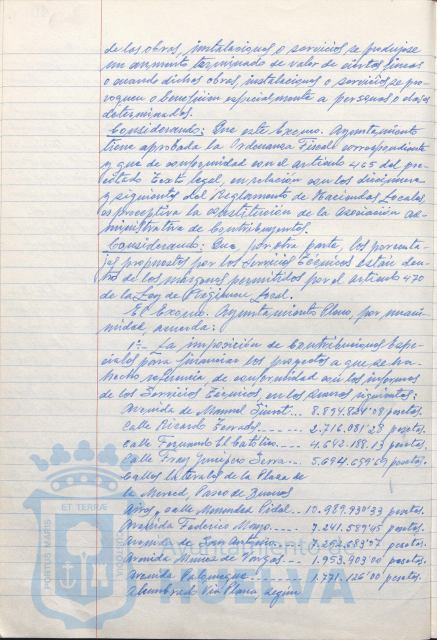 de las obras, instalaciones o servicios se produjese
un aumento terminado de valor de ciertas fincas
o cuando dichas obras, instalaciones o servicios se pro-
voquen o beneficien especialmente a personas o clases
determinadas.
Considerando: Que este Excmo. Ayuntamiento
tiene aprobada la Ordenanza Fiscal correspondiente
y que de conformidad con el artículo 465 del pre-
citado Texto legal, en relación con los
y siguientes del Reglamento de Haciendas Locales,
es preceptiva la constitución de la Asociación Ad-
ministrativa de Contribuyentes.
Considerando: Que, por otra parte, los porcenta-
jes propuestos por los Servicios Técnicos están den-
tro de los márgenes permitidos por el artículo 470
de la Ley de Régimen Local.
El Excmo. Ayuntamiento Pleno, por unani-
midad, acuerda:
1º.- La imposición de Contribuciones Espe-
ciales para financiar los proyectos a que se ha
hecho referencia de conformidad con los informes
de los Servicios Técnicos, en las sumas siguientes:
Avenida de Manuel Siurot... 8.894.824'08 pesetas.
Calle Ricardo Terrades 2.716.081'28 pesetas.
Calle Fernando El Católico.... 4.642.188'13 pesetas.
Calle Fray Junípero Serra... 5.694.659'69 pesetas.
Calles laterales de la Plaza de
la Merced, Paseo de Buenos
Aires, calle Menéndez Pidal.. 10.989.930'33 pesetas.
Avenida Federico Mayo.... 7.241.589'45 pesetas.
Avenida de San Antonio.. 7.252.683'57 pesetas.
Avenida Muñoz de Vargas. 1.953.903'00 pesetas.
Avenida Palomeque 1.771.126'00 pesetas.
Alumbrado Vía Plana según
ET TERRÆ
PORTUS MARIS
CUSTODIA
Ayuntamiento de
HUELVA